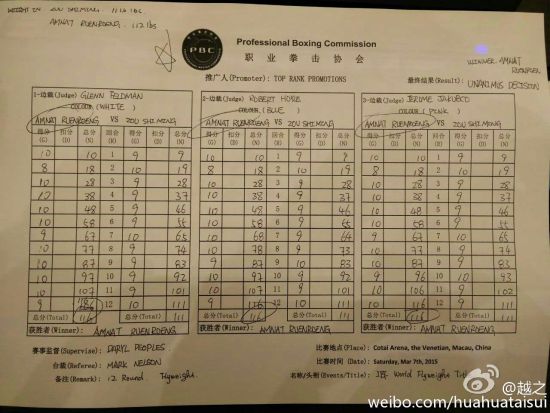 WEIGHT IN ZOU SHIMING 112 lbs
AMNAT RUENROENG. 112 lbs
PBC
Professional Boxing Commission
职业拳击协会
推广人(Promoter): TOP RANK PROMOTIONS
WINNER. AMNAT RUENROENG
最终结果(Result): UNANIMUS DECISION
1-边裁(Judge) GLENN FELDMAN
COLOUR (WHITE)
AMNAT RUENROENG VS ZOU SHIMING
得分(G) 扣分(D) 总分(N) 回合(R) 得分(G) 扣分(D) 总分(N)
10 10 1 9 9
8 18 2 10 19
10 28 3 9 28
10 38 4 9 37
10 48 5 9 46
10 58 6 9 55
9 67 7 10 65
10 77 8 9 74
10 87 9 9 83
10 97 10 9 92
10 107 11 9 101
9 12 10 111
总分(Total) 116 总分(Total) 111
获胜者(Winner): AMNAT RUENROENG
2-边裁(Judge) ROBERT HOYLE
COLOUR (BLUE)
AMNAT RUENROENG VS ZOU SHIMING
得分(G) 扣分(D) 总分(N) 回合(R) 得分(G) 扣分(D) 总分(N)
10 10 1 9 9
8 18 2 10 19
10 28 3 9 28
10 38 4 9 37
10 48 5 9 46
10 58 6 9 55
10 68 7 9 64
10 78 8 9 73
9 87 9 10 83
10 97 10 9 92
10 107 11 9 101
9 116 12 10 111
总分(Total) 116 总分(Total) 111
获胜者(Winner): AMNAT RUENROENG
3-边裁(Judge) JEROME
COLOUR (PINK)
AMNAT RUENROENG VS ZOU SHIMING
得分(G) 扣分(D) 总分(N) 回合(R) 得分(G) 扣分(D) 总分(N)
10 10 1 9 9
8 18 2 10 19
10 28 3 9 28
10 38 4 9 37
10 48 5 9 46
10 58 6 9 55
9 67 7 10 65
10 77 8 9 74
10 87 9 9 83
9 96 10 10 93
10 106 11 9 102
10 116 12 9 111
总分(Total) 116 总分(Total) 111
获胜者(Winner): AMNAT RUENROENG
赛事监督(Supervise): DARYL PEOPLES
台裁(Referee) MARK NELSON
备注(Remark) 12 Round. Flyweight
比赛地点(Place): Cotai Arena, the Venetian, Macau, China
比赛时间(Date): Saturday, Mar 7th, 2015
名称/头衔(Events/Title): IBF World Flyweight
@越之
weibo.com/huahuataisui